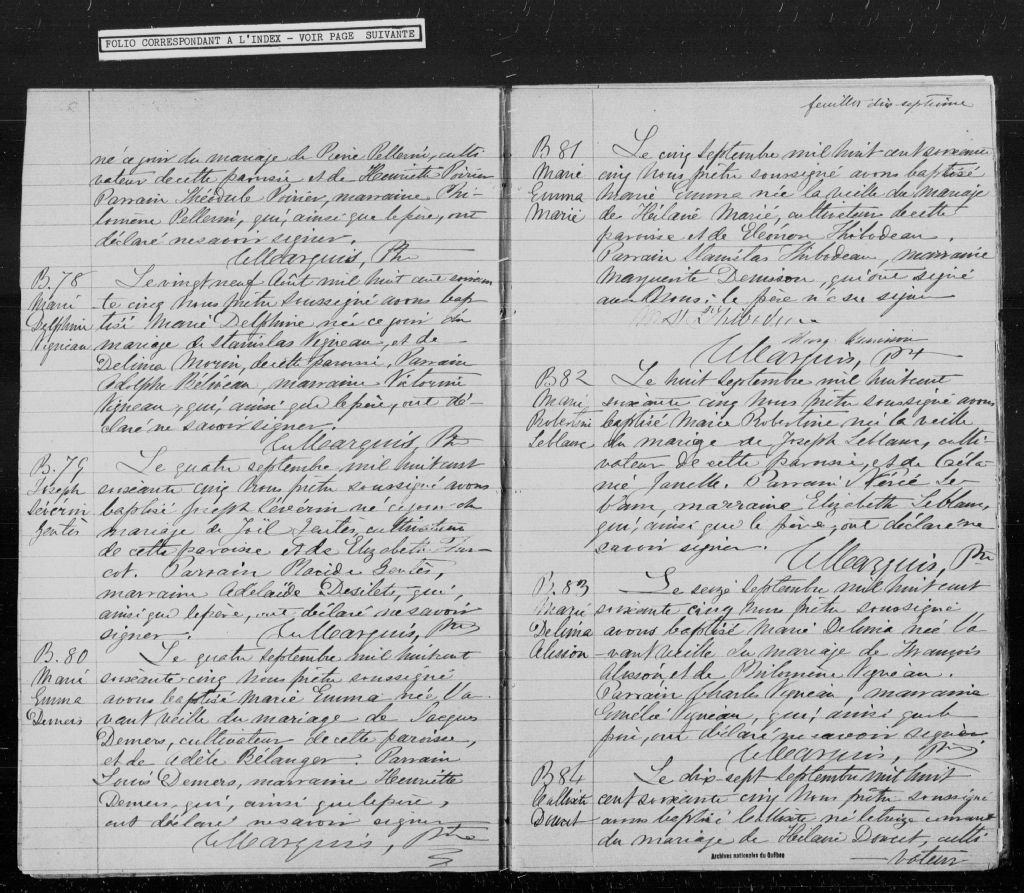 FOLIO CORRESPONDANT A L'INDEX - VOIR PAGE SUIVANTE
né ce jour du mariage de Pierre Pellerin, culti
vateur de cette paroisse et de Henriette Poirier
Parrain Théodule Poirier, marraine Phi
lomène Pellerin, qui, ainsi que le père, ont
déclaré ne savoir signer.
Marquis, Ptre
B. 78
Marie
Delphine
Vigneau
Le vingt neuf Août mil huit cent soixan
te cinq Nous prêtre soussigné avons bap
tisé Marie Delphine née ce jour du
mariage de Stanislas Vigneau, et de
Delima Morin, de cette paroisse, Parrain
Adolphe Béliveau, marraine Victorine
Vigneau, qui, ainsi que le père, ont dé-
claré ne savoir signer.
Marquis, Ptre
B. 79
Joseph
Sévérin
Gentès
Le quatre septembre mil huit cent
soixante cinq Nous prêtre soussigné avons
baptisé Joseph Sévérin né ce jour du
mariage de Joël Gentès, cultivateur
de cette paroisse et de Elizabeth Tur-
cot. Parrain Placide Gentès,
marraine Adélaïde Desilets, qui,
ainsi que le père, ont déclaré ne savoir
signer.
Marquis, Ptre
B. 80
Marie
Emma
Demers
Le quatre septembre mil huit cent
soixante-cinq Nous prêtre soussigné
avons baptisé Marie Emma née l'a-
vant veille du mariage de Jacques
Demers, cultivateur de cette paroisse,
et de Adèle Bélanger. Parrain
Louis Demers, marraine Henriette
Demers, qui, ainsi que le père,
ont déclaré ne savoir signer
Marquis, Ptre
feuillet dix-septième
B 81
Marie
Emma
Marié
Le cinq septembre mil huit cent soixante
cinq Nous prêtre soussigné avons baptisé
Marie Emma née la veille du mariage
de Hilaire Marié, cultivateur de cette
paroisse et de Eléonore Thibodeau.
Parrain Stanislas Thibodeau, marraine
Marguerite Denisson, qui ont signé
avec Nous; le père n'a su signer
Thibodeau
Marg. Denisson
Marquis, Ptre
B 82
Marie
Robertine
Leblanc
Le huit Septembre mil huit cent
soixante cinq Nous prêtre soussigné avons
baptisé Marie Robertine, née la veille
du mariage de Joseph Leblanc, culti-
vateur de cette paroisse, et de Céla-
nie Janelle. Parrain Nérée Le-
blanc, marraine Elizabeth Leblanc,
qui, ainsi que le père, ont déclaré ne
savoir signer.
Marquis, Ptre
B. 83
Marie
Delima
Alission
Le seize Septembre mil huit cent
soixante cinq Nous prêtre soussigné
avons baptisé Marie Delima née l'a
vant veille du mariage de François
Alission et de Philomène Vigneau.
Parrain Charles Vigneau, marraine
Emélie Vigneau, qui, ainsi que le
père, ont déclaré ne savoir signer
Marquis, Ptre
B 84
Callixte
Doucet
Le dix-sept septembre mil huit
cent soixante cinq Nous prêtre soussigné
avons baptisé Callixte né le treize courant
du mariage de Hilaire Doucet, culti
vateur
Archives nationales du Québec